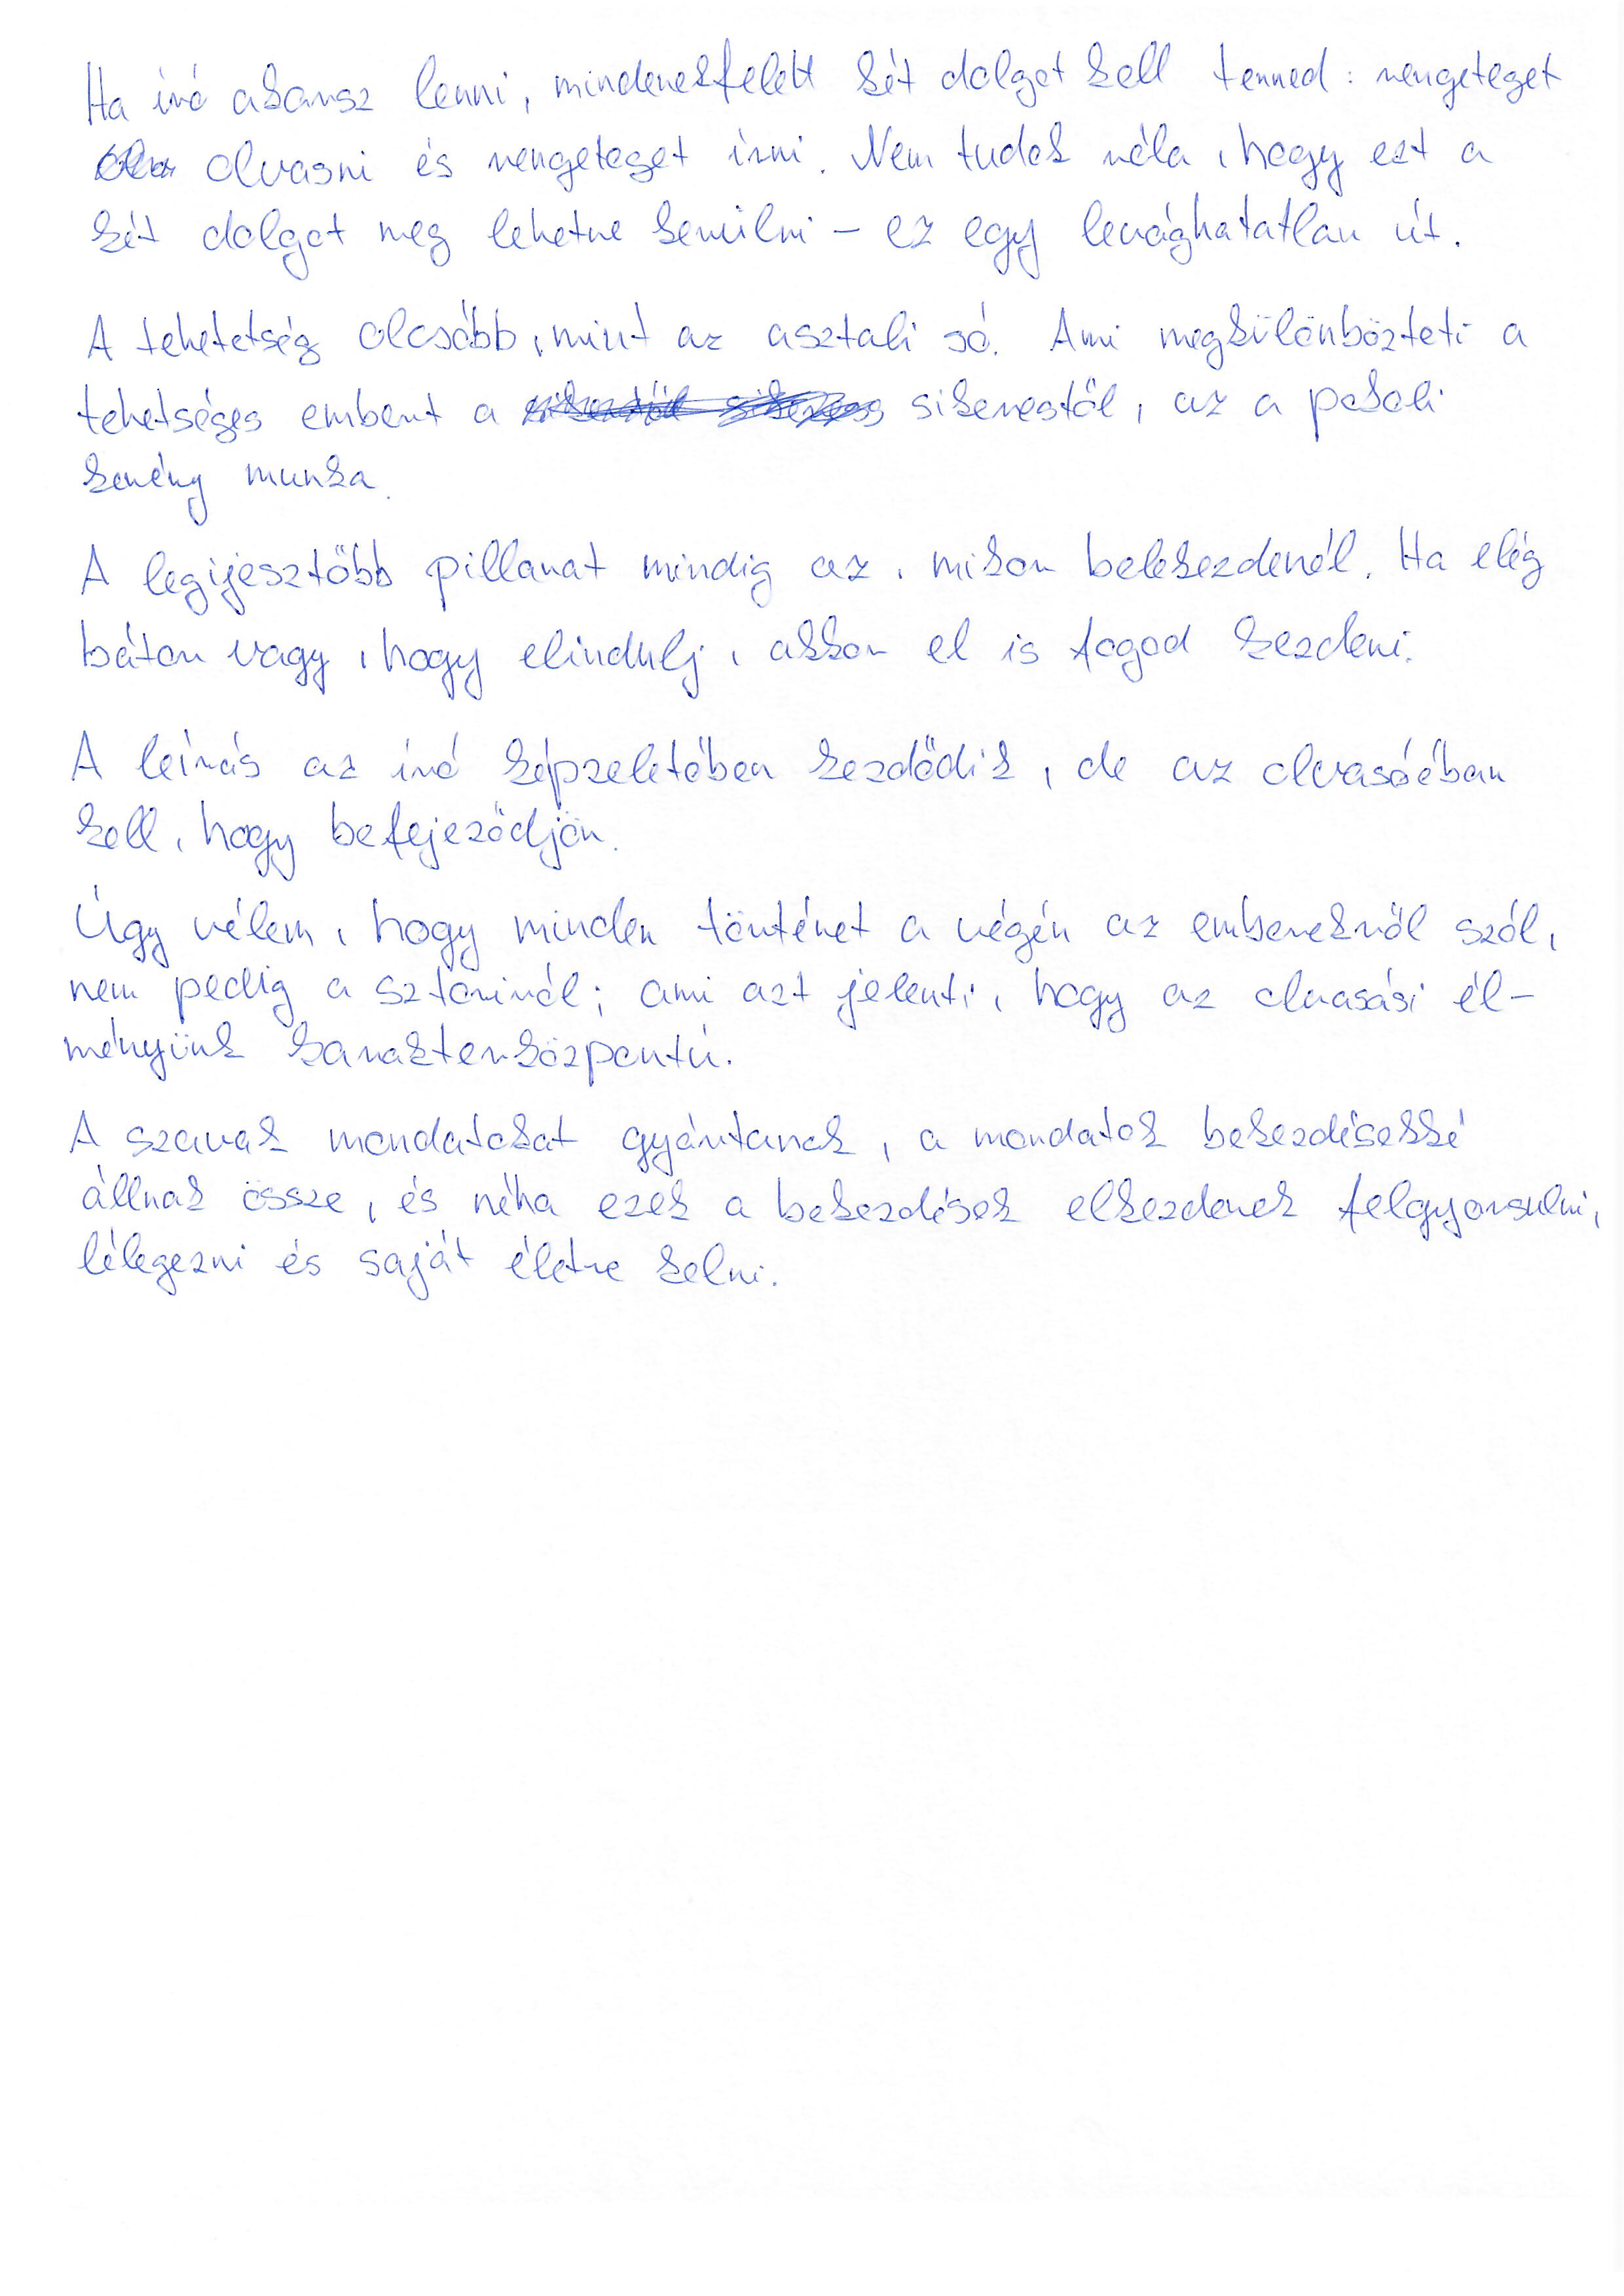 Ha író akarsz lenni, mindenekfelett két dolgot kell tenned: rengeteget
olvasni és rengeteget írni. Nem tudok róla, hogy ezt a
két dolgot meg lehetne kerülni – ez egy levághatatlan út.
A tehetetség olcsóbb, mint az asztali só. Ami megkülönbözteti a
tehetséges embert a sikerestől, az a pokoli
kemény munka.
A legijesztőbb pillanat mindig az, mikor belekezdenél. Ha elég
bátor vagy, hogy elindulj, akkor el is fogod kezdeni.
A leírás az író képzeletében kezdődik, de az olvasóéban
kell, hogy befejeződjön.
Úgy vélem, hogy minden történet a végén az emberekről szól,
nem pedig a sztoriról; ami azt jelenti, hogy az olvasási él-
ményünk karakterközpontú.
A szavak mondatokat gyártanak, a mondatok bekezdésekké
állnak össze, és néha ezek a bekezdések elkezdenek felgyorsulni,
lélegezni és saját életre kelni.